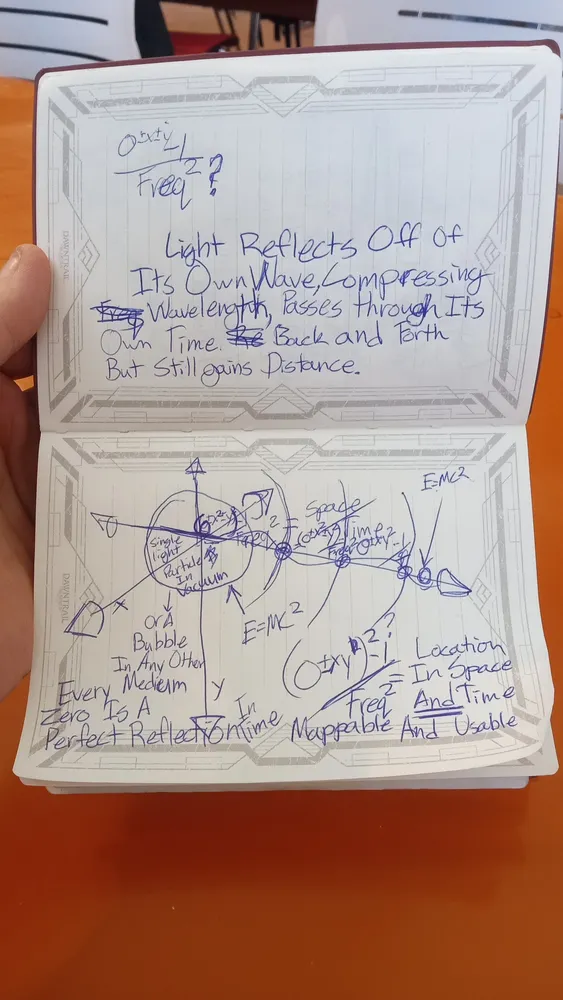 0^±x±y-1
Freq²?
Light Reflects Off Of
Its Own Wave, Compressing
Wavelength, Passes through Its
Own Time. Back and Forth
But Still gains Distance.
DAWNTRAIL
E=MC²
Space
Time
Single
Light
Particle
In
Vacuum
E=MC²
X
Or A
Bubble
In Any Other
Medium
Y
Every
Zero Is A
Perfect Reflection In Time
(0^±xy)²-i?
Freq²
= Location
In Space
And Time
Mappable And Usable
DAWNTRAIL